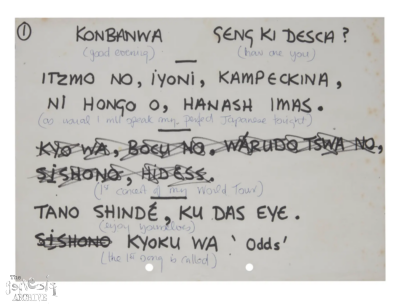 ①
KONBANWA GENG KI DESCA ?
(good evening) (how are you)
ITZMO NO, IYONI, KAMPECKINA,
NI HONGO O, HANASH IMAS.
(as usual I will speak my perfect Japanese tonight)
KYO WA, BOCU NO, WARUDO TSWA NO,
SISHONO, HIDESS.
(1st concert of my World Tour)
TANO SHINDÉ, KU DAS EYE.
(enjoy yourselves)
SISHONO KYOKU WA 'Odds'
(the 1st song is called)
The genesis
ARCHIVE